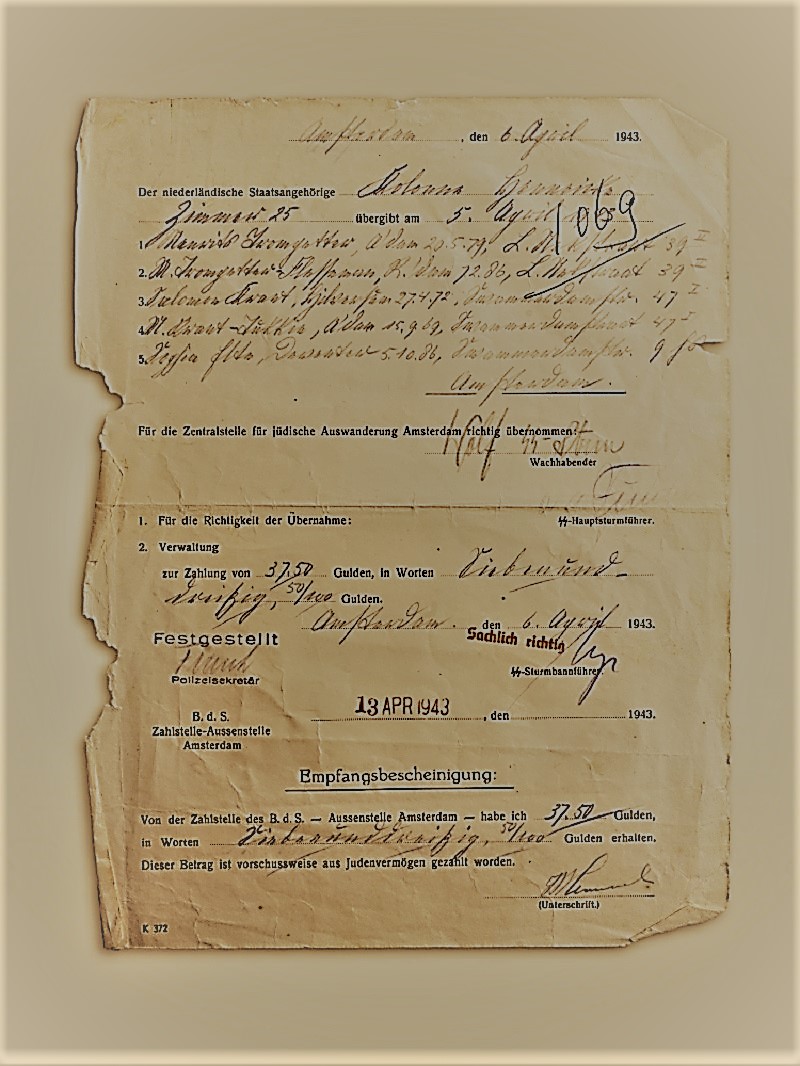 Amsterdam, den 6. April 1943.
Der niederländische Staatsangehörige Kolonne Henneicke
Zimmer 25 übergibt am 5. April
1069
1. Tromgetter, A'dam 29.5.79, 39 I
2. M. Tromgetter-Flesseman, A'dam 39 II
3. Salomon Krant, Hilversum 27.4.72, Swammerdamstr. 47 I
4. Krant-, A'dam 15.9.69, Swammerdamstraat 47 I
5. Elte, Deventer 5.10.86, Swammerdamstr. 9
Amsterdam.
Für die Zentralstelle für jüdische Auswanderung Amsterdam richtig übernommen:
Wachhabender
1. Für die Richtigkeit der Übernahme:
SS-Hauptsturmführer.
2. Verwaltung
zur Zahlung von 37,50 Gulden, in Worten Siebenund-
dreißig, 50/100 Gulden.
Amsterdam. den 6. April 1943.
Festgestellt
Sachlich richtig
Polizeisekretär
SS-Sturmbannführer.
13 APR 1943, den 1943.
B. d. S.
Zahlstelle-Aussenstelle
Amsterdam
Empfangsbescheinigung:
Von der Zahlstelle des B. d. S. — Aussenstelle Amsterdam — habe ich 37.50 Gulden,
in Worten Siebenunddreißig, 50/100 Gulden erhalten.
Dieser Betrag ist vorschussweise aus Judenvermögen gezahlt worden.
(Unterschrift.)
K 372